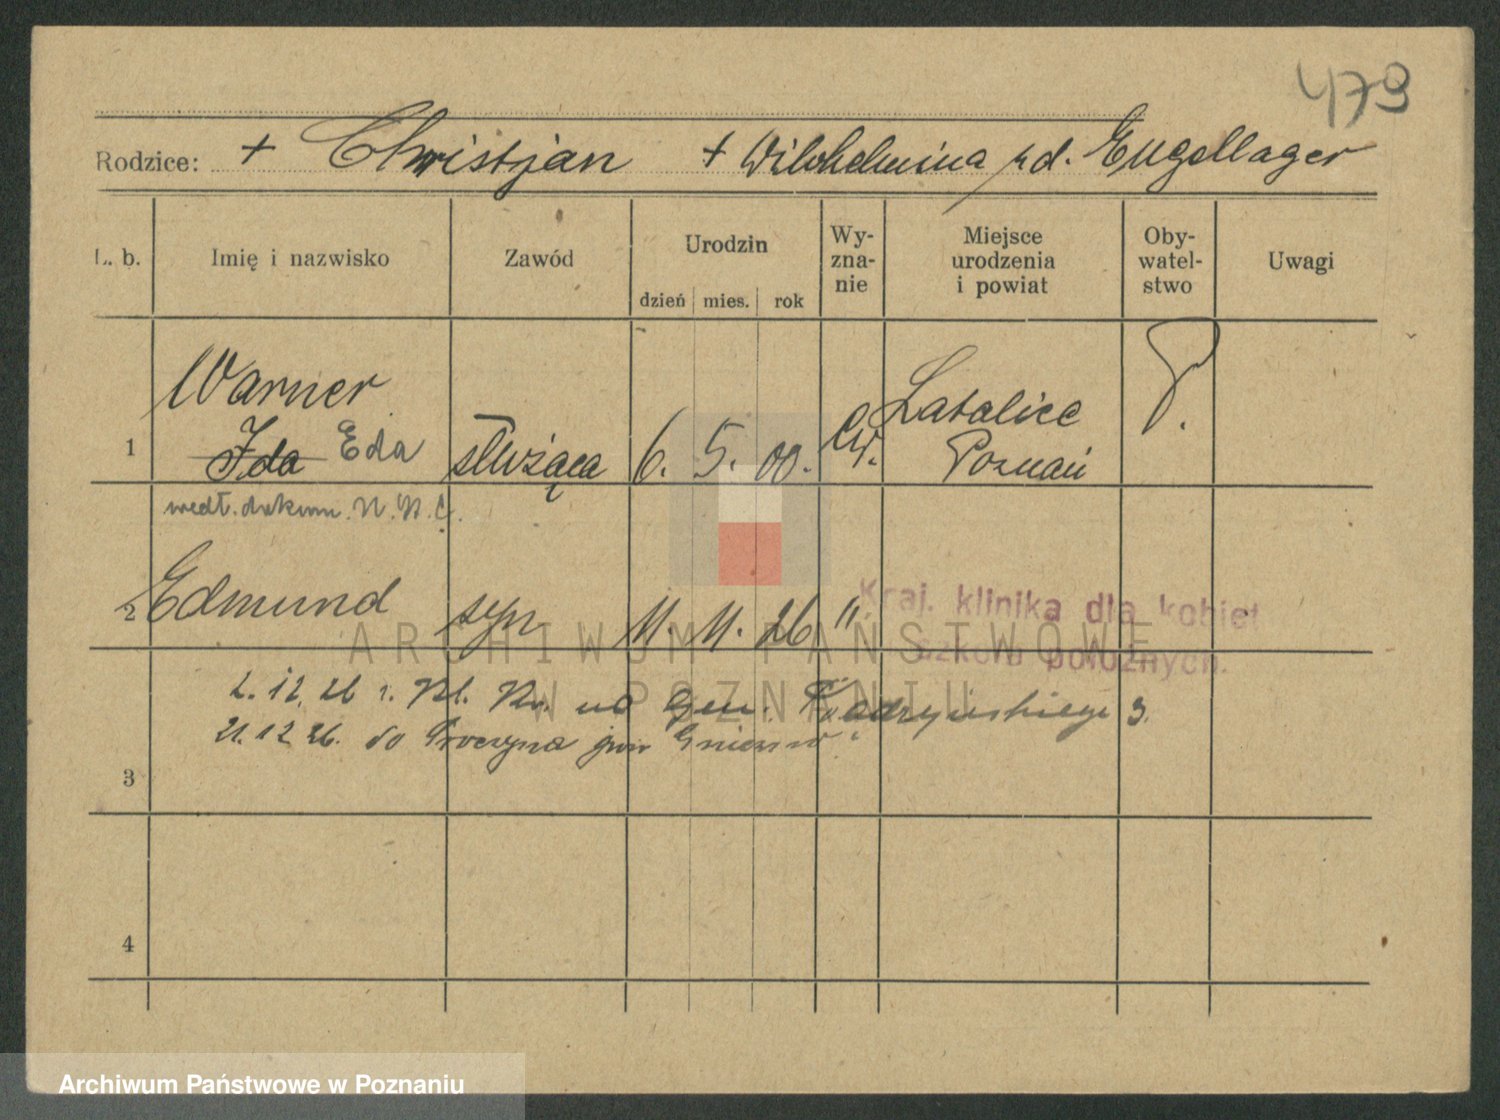 479
Rodzice: + Christjan + Wilhelmina zd. Engellager
L. b. Imię i nazwisko Zawód Urodzin dzień mies. rok Wy-zna-nie Miejsce urodzenia i powiat Oby-watel-stwo Uwagi
Warner
1 Ida Eda służąca 6. 5. 00. ew. Latalice Poznań P.
wedł. dokum. N. N. C.
2 Edmund syn 11. 11. 26 "
Kraj. klinika dla kobiet
szkoła położnych.
ARCHIWUM PAŃSTWOWE
W POZNANIU
2. 12. 26 z. Kl. ul Gen. Prądzyńskiego 3.
21. 12 26. do
3
4
Archiwum Państwowe w Poznaniu